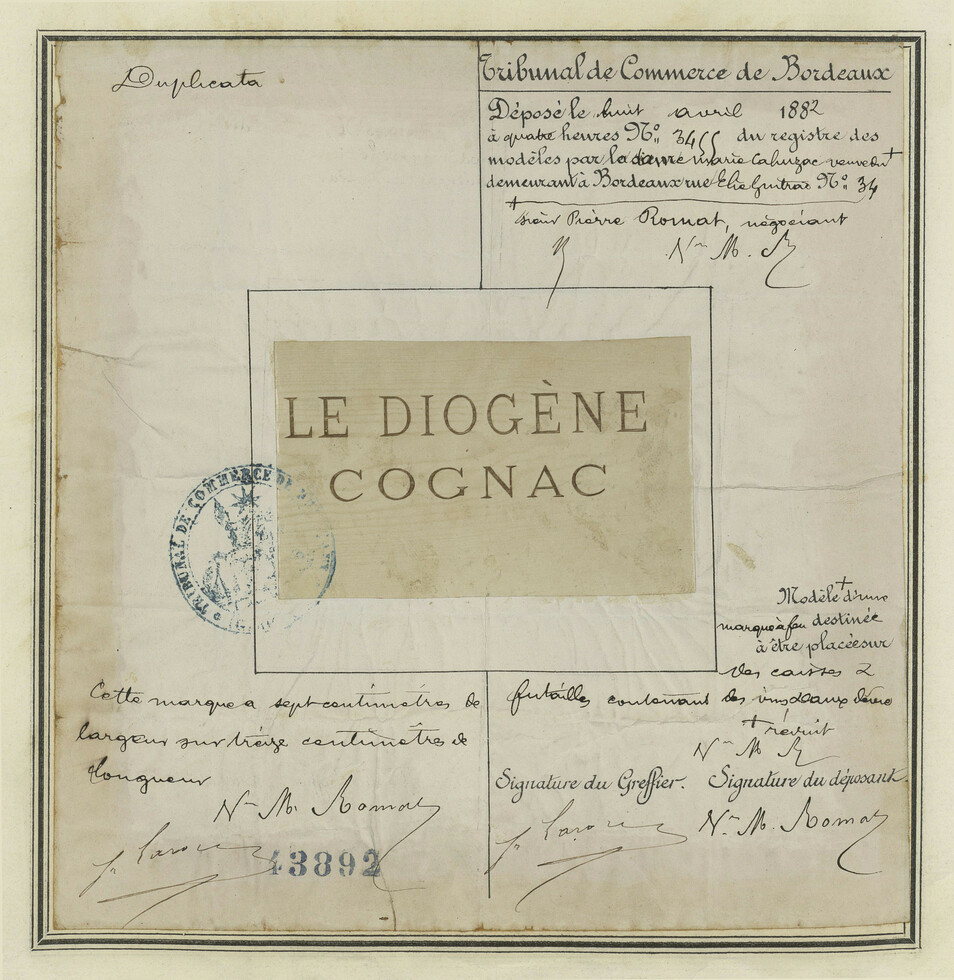 Duplicata
Tribunal de Commerce de Bordeaux
Déposé le huit avril 1882
à quatre heures No. 3455 du registre des
modèles par la dame marie Cahuzac veuve du +
demeurant à Bordeaux rue Elie Gintrac No. 34
+ sieur Pierre Romat, négociant
Ve M. R
LE DIOGÈNE
COGNAC
TRIBUNAL DE COMMERCE DE
Modèle + d'une
marque à feu destinée
à être placée sur
des caisses &
futailles contenant des vins & eaux de vie
+ réduit
Ve M R
Cette marque a sept centimètres de
largeur sur treize centimètres de
longueur
Ve M. Romat
43892
Signature du Greffier. Signature du déposant.
Ve M. Romat